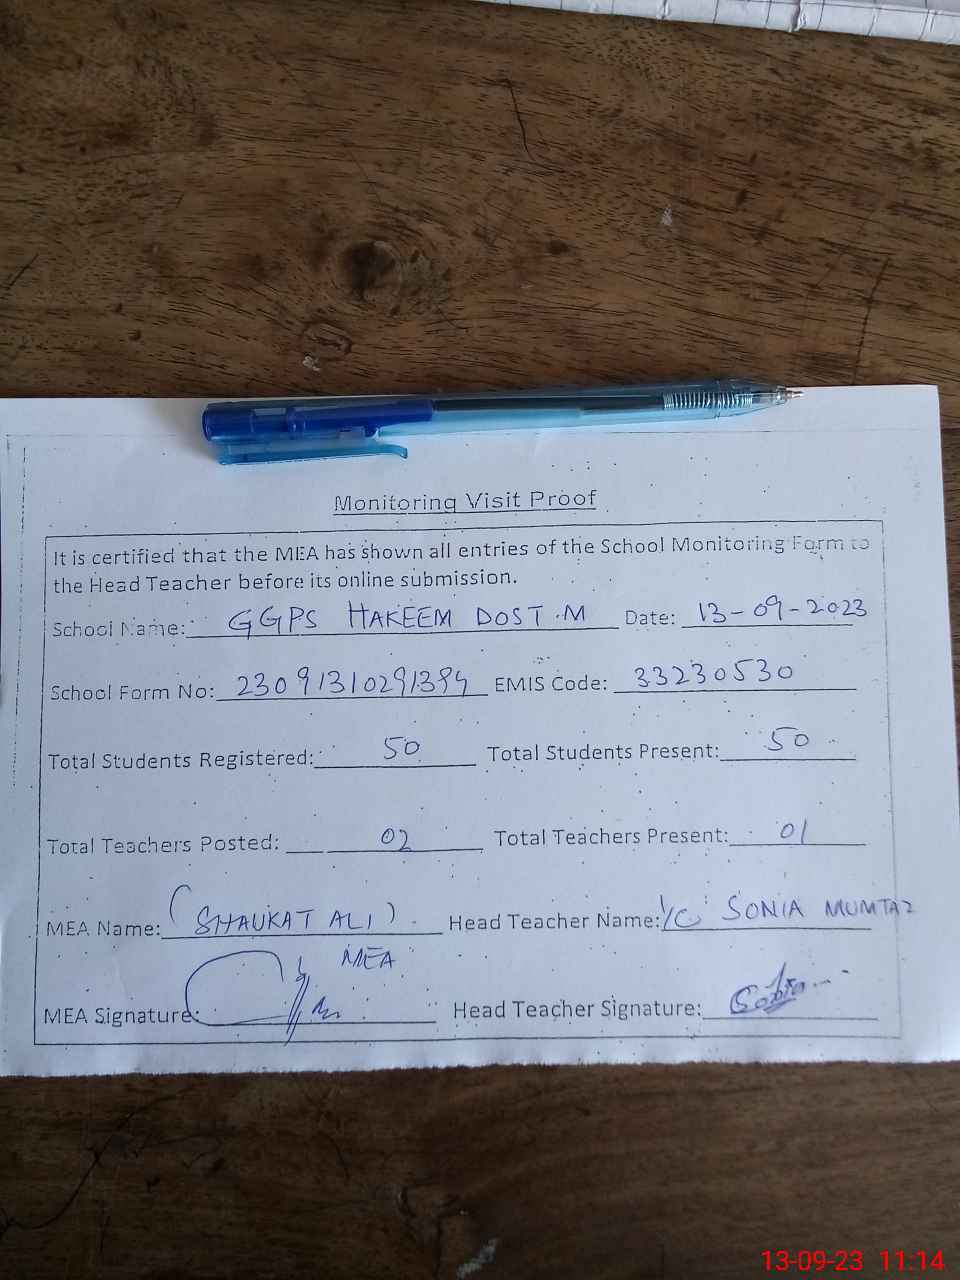 Monitoring Visit Proof
It is certified that the MEA has shown all entries of the School Monitoring Form to
the Head Teacher before its online submission.
School Name: GGPS HAKEEM DOST .M Date: 13-09-2023
School Form No: 23091310291394 EMIS Code: 33230530
Total Students Registered: 50 Total Students Present: 50
Total Teachers Posted: 02 Total Teachers Present: 01
MEA Name: (SHAUKAT ALI) Head Teacher Name: I/C SONIA MUMTAZ
MEA
MEA Signature: Head Teacher Signature:
13-09-23 11:14